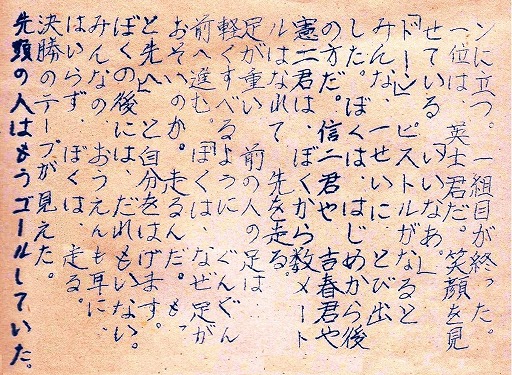 ンに立つ。一組目が終った。
一位は、英士君だ。笑顔を見
せている「いいなあ。」
「ドーン」ピストルがなると
みんな、一せいに、とび出
した。ぼくは、はじめから後
の方だ。信二君や 吉春君や
憲二君は、ぼくから、数メート
ルはなれて 先を走る。
足が重い 前の人の足は
軽くすべるように ぐんぐん
前へ進む。「ぼくは、なぜ足が
おそいのか。走るんだ。もっ
と先へ」と自分をはげます。
ぼくの後には、だれもいない。
みんなの、おうえんも耳に、
はいらず、ぼくは、走る。
決勝のテープが見えた。
先頭の人はもうゴールしていた。